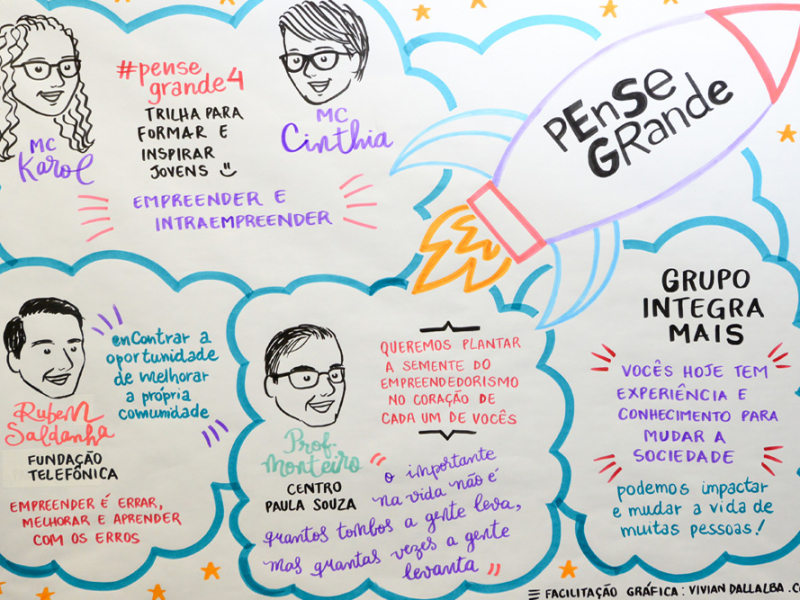 MC
Karol
#pense
grande4
TRILHA PARA
FORMAR E
INSPIRAR
JOVENS
MC
Cinthia
EMPREENDER E
INTRAEMPREENDER
PEnSe
GRande
Rubem
Saldanha
FUNDAÇÃO
TELEFÔNICA
enContrar a
oportunidade
de melhorar
a própria
comunidade
EMPREENDER É ERRAR,
MELHORAR E APRENDER
COM OS ERROS
Prof.
Monteiro
CENTRO
PAULA SOUZA
QUEREMOS PLANTAR
A SEMENTE DO
EMPREENDEDORISMO
NO CORAÇÃO DE
CADA UM DE VOCÊS
"o importante
na vida não é
quantos tombos a gente leva,
mas quantas vezes a gente
levanta"
GRUPO
INTEGRA
MAIS
VOCÊS HOJE TEM
EXPERIÊNCIA E
CONHECIMENTO PARA
MUDAR A
SOCIEDADE
podemos impactar
e mudar a vida de
muitas pessoas!
FACILITAÇÃO GRÁFICA: VIVIAN DALLALBA.C